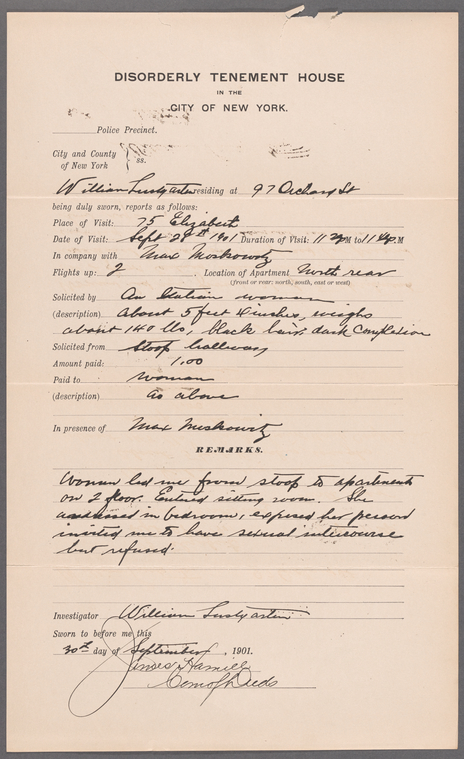 DISORDERLY TENEMENT HOUSE
IN THE
CITY OF NEW YORK.
Police Precinct.
City and County
of New York
ss.
William Lustgarten residing at 97 Orchard St
being duly sworn, reports as follows:
Place of Visit: 75 Elizabeth
Date of Visit: Sept 28th 1901 Duration of Visit: 11 P.M to 11 P.M
In company with Max Moskowitz
Flights up: 2 Location of Apartment North rear
(front or rear: north, south, east or west)
Solicited by An Italian woman
(description) About 5 feet 4 inches, weighs
about 140 lbs, black hair, dark completion
Solicited from Stoop hallway
Amount paid: 1.00
Paid to woman
(description) as above
In presence of Max Moskowitz
REMARKS.
Woman led me from stoop to apartment
on 2 floor. Entered sitting room. She
undressed in bedroom, exposed her person
invited me to have sexual intercourse
but refused.
Investigator William Lustgarten
Sworn to before me this
30th day of September, 1901.
James Hamill
Com of Deeds